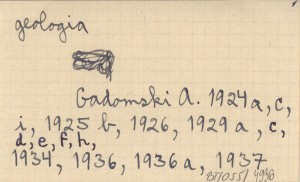 geologia
Gadomski A. 1924a, c,
i, 1925 b, 1926, 1929a, c,
d, e, f, h,
1934, 1936, 1936a, 1937